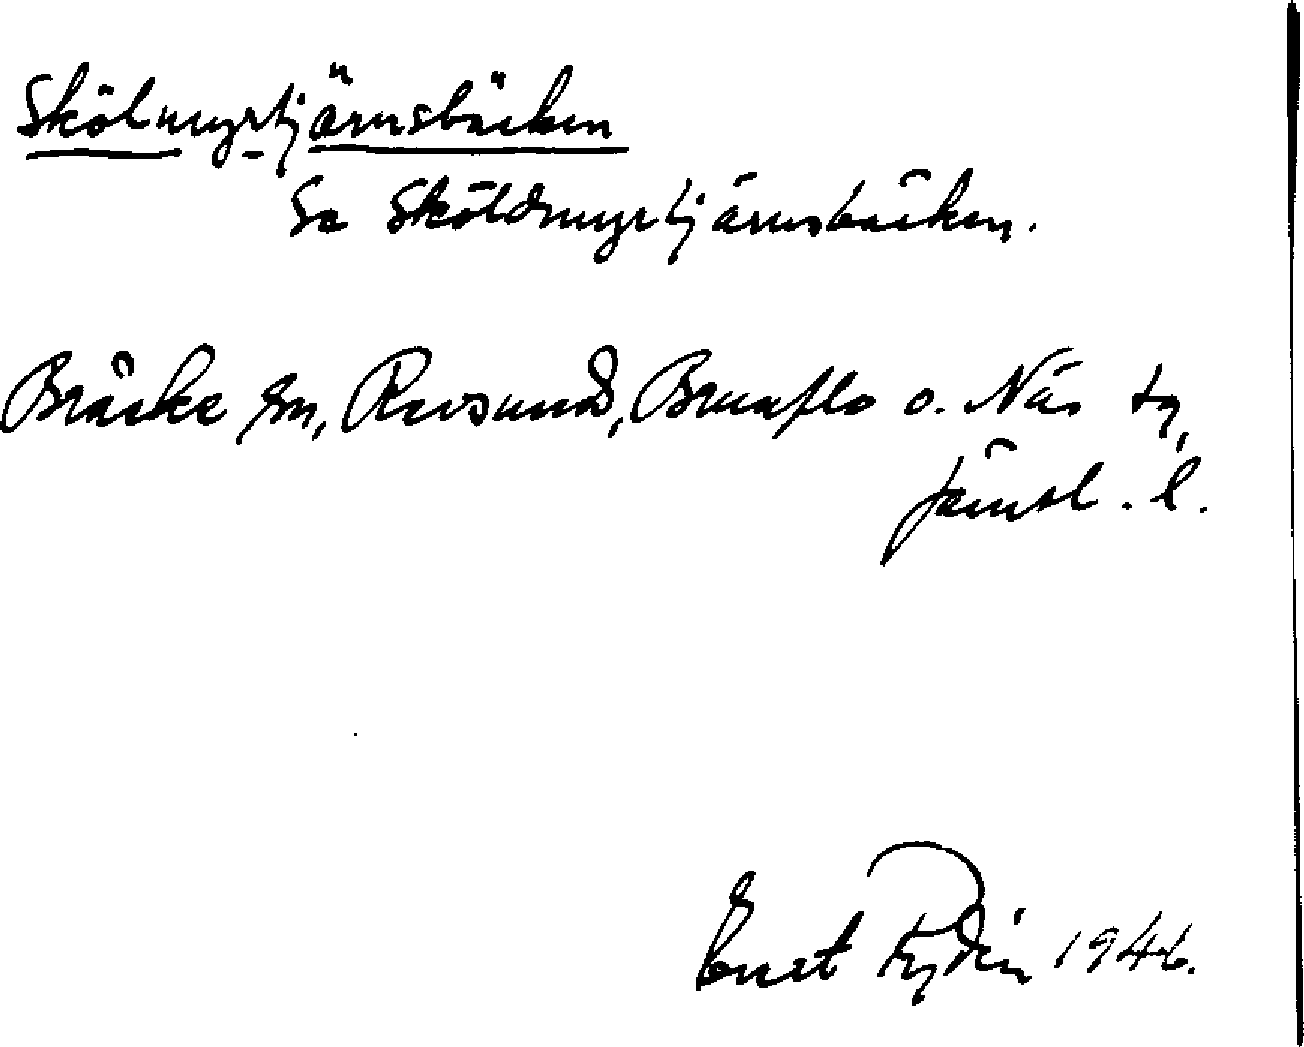 Skölmyrtjärnsbäcken
Se Sköldmyrtjärnsbäcken.
Bräcke sn, Revsund, Brunflo o. Näs tg,
Jämtl. l.
Rydén 1946.